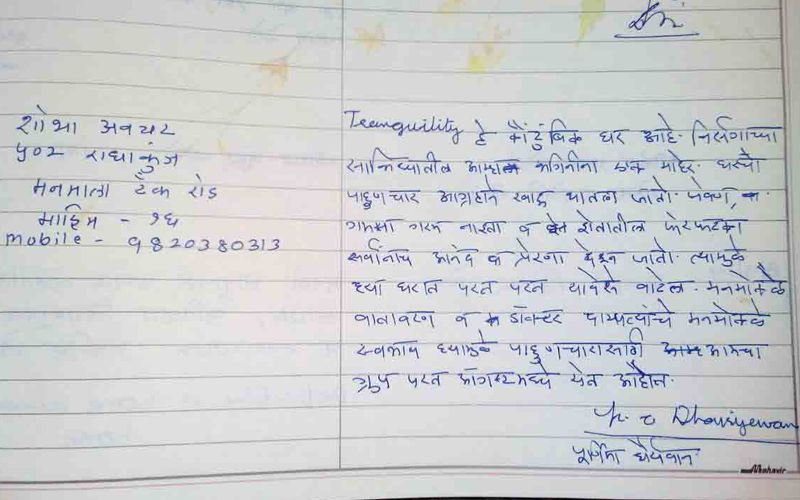 शोभा अवचर
५०२ राधाकुंज
मनमाला टँक रोड
माहिम - १६
mobile - 9820380313
Tranquility हे कौटुंबिक घर आहे. निर्सगाच्या
सानिध्यातील आम्हा भगिनींना एक माहेर. घरचा
पाहुणचार आग्रहाने घातला जातो. जेवण,
गरमा गरम नास्ता व शेतातील फेरफटका
सर्वांनाच आनंद व प्रेरणा देऊन जातो. त्यामुळे
ह्या घरात परत परत यावेसे वाटेल. मनमोकळे
वातावरण व डॉक्टर दाम्पत्यांचे मनमोकळे
स्वभाव ह्यामुळे पाहुणचारासाठी आमचा
ग्रुप परत ऑगस्टमध्ये येत आहोत.
Dhairyewan
पूर्णिमा धैर्यवान
Mahavir